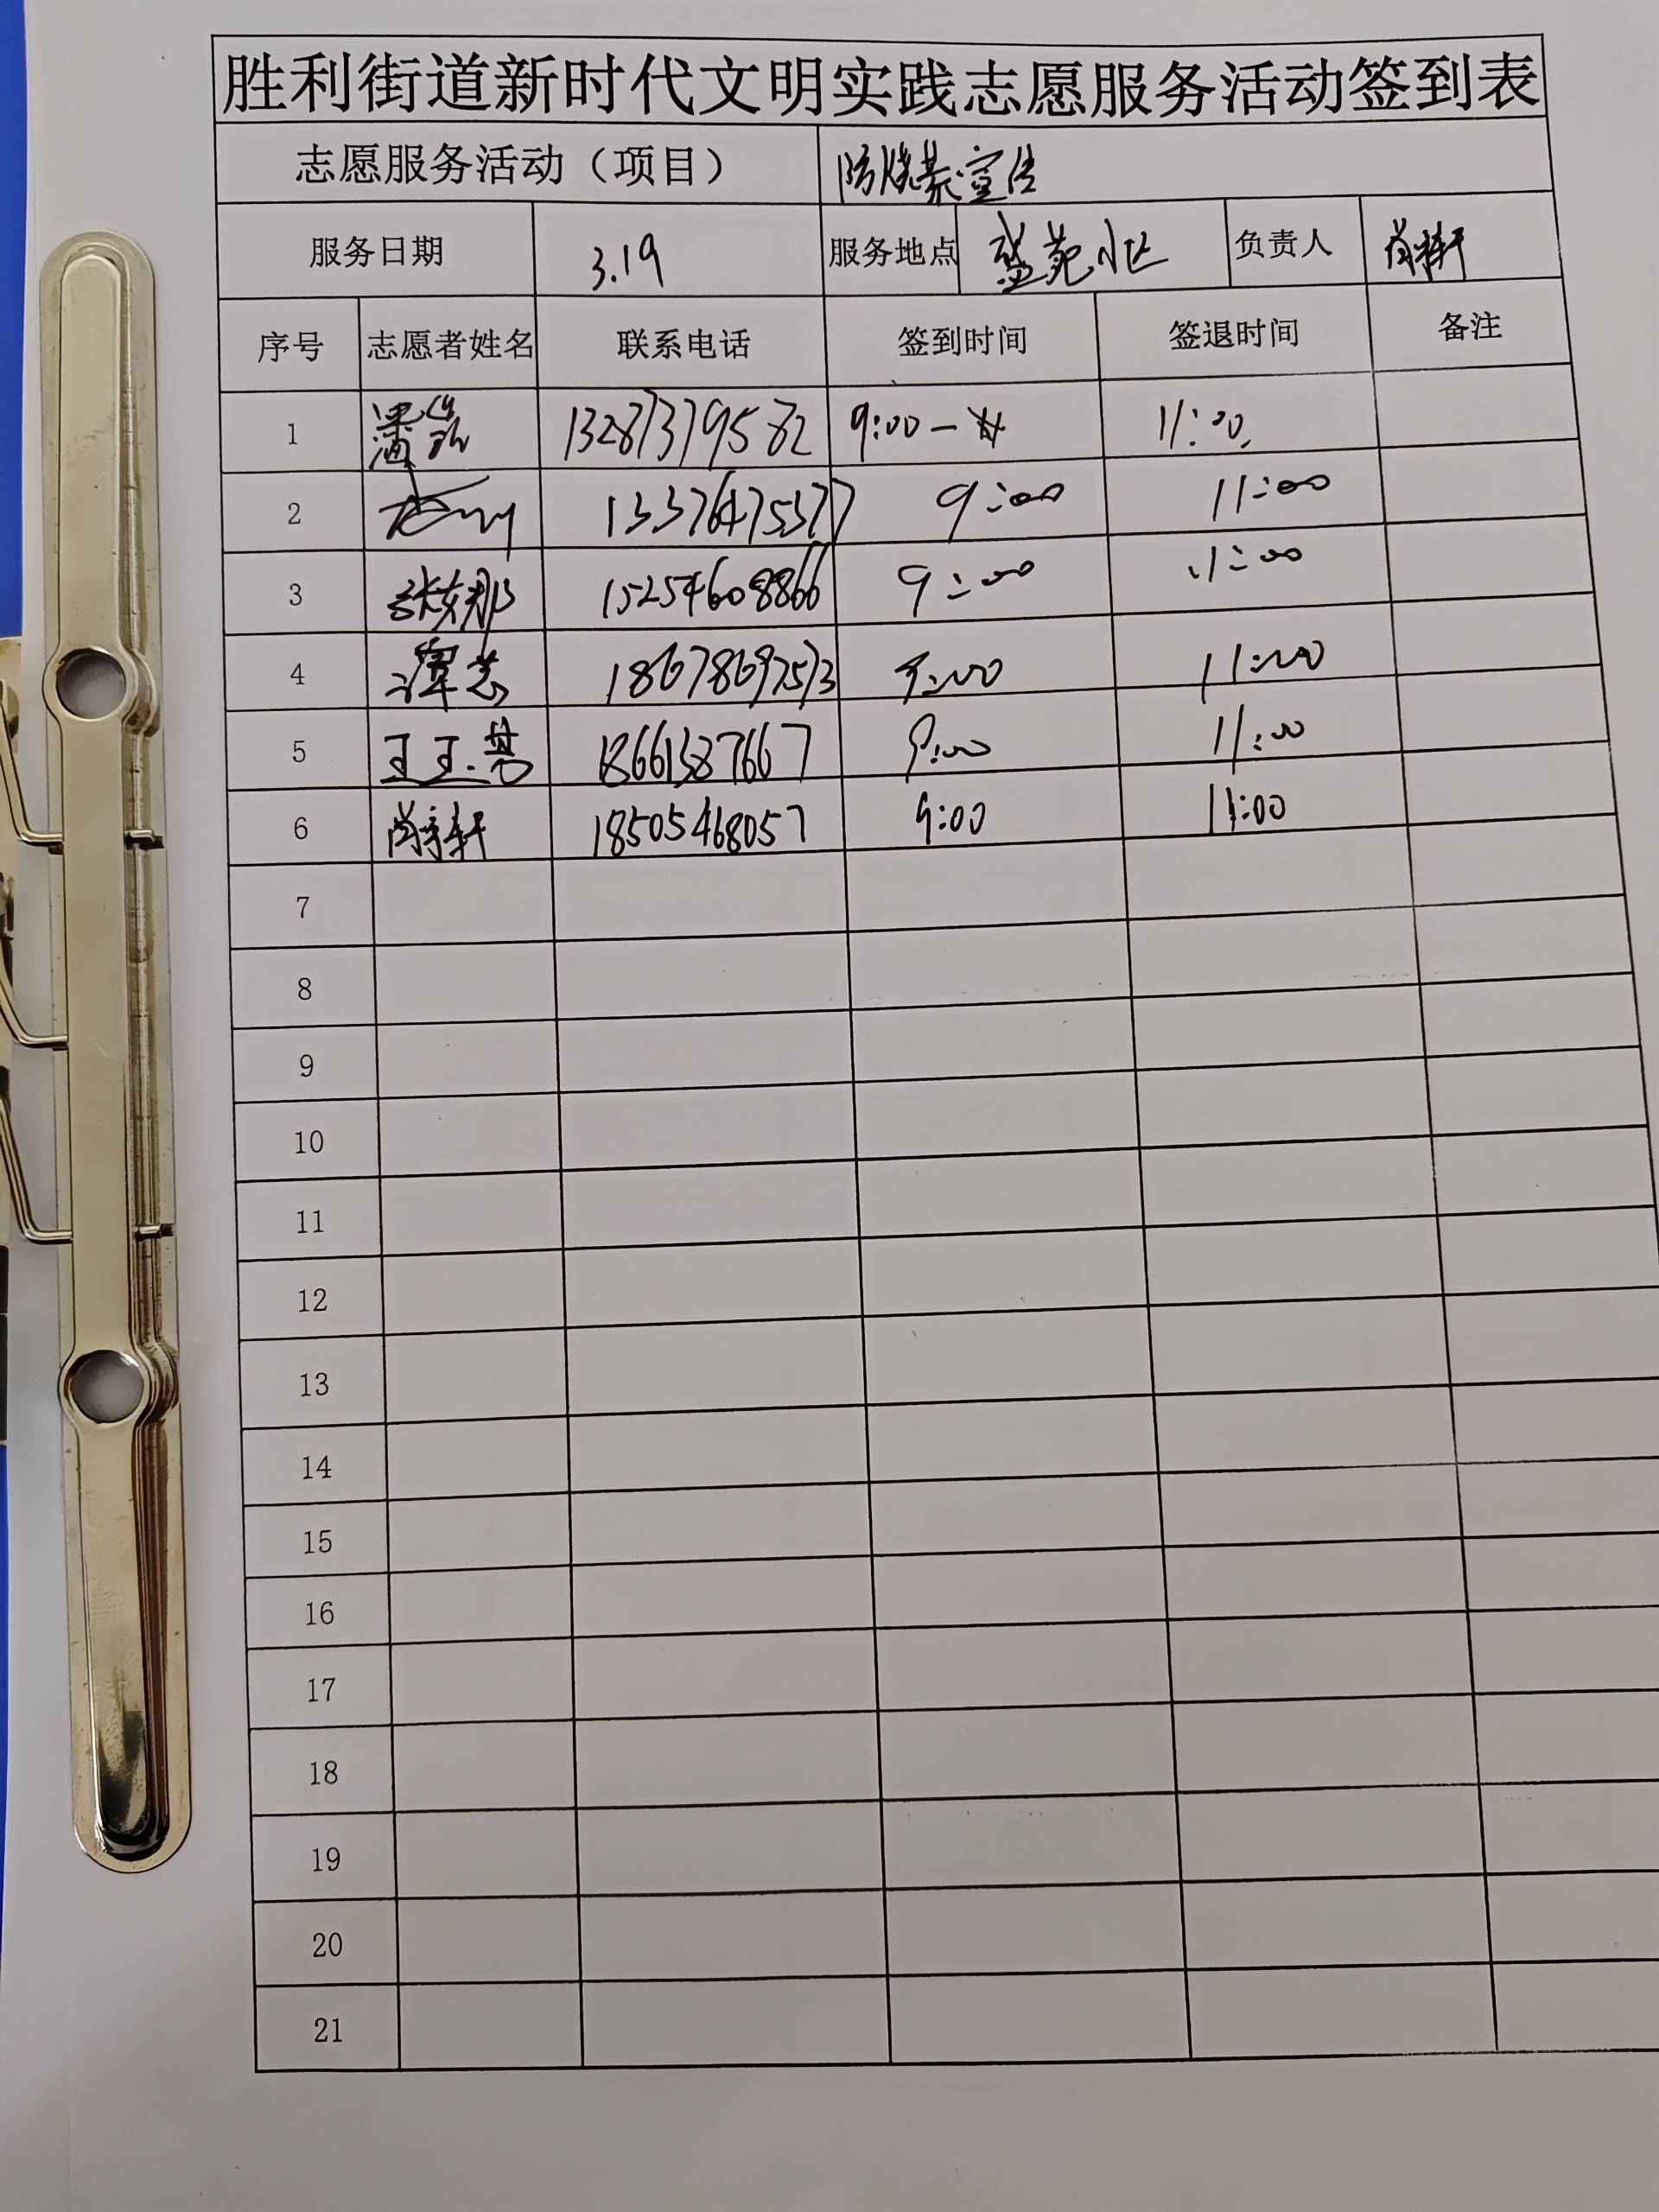 胜利街道新时代文明实践志愿服务活动签到表
志愿服务活动（项目） 防烧荒宣传
服务日期 3.19 服务地点 盛苑小区 负责人
序号 志愿者姓名 联系电话 签到时间 签退时间 备注
1 13287379582 9:00— 11:00
2 13376475377 9:00 11:00
3 张娜 15254608866 9:00 11:00
4 谭芸 18678697573 9:00 11:00
5 18661387667 9:00 11:00
6 18505468057 9:00 11:00
7
8
9
10
11
12
13
14
15
16
17
18
19
20
21